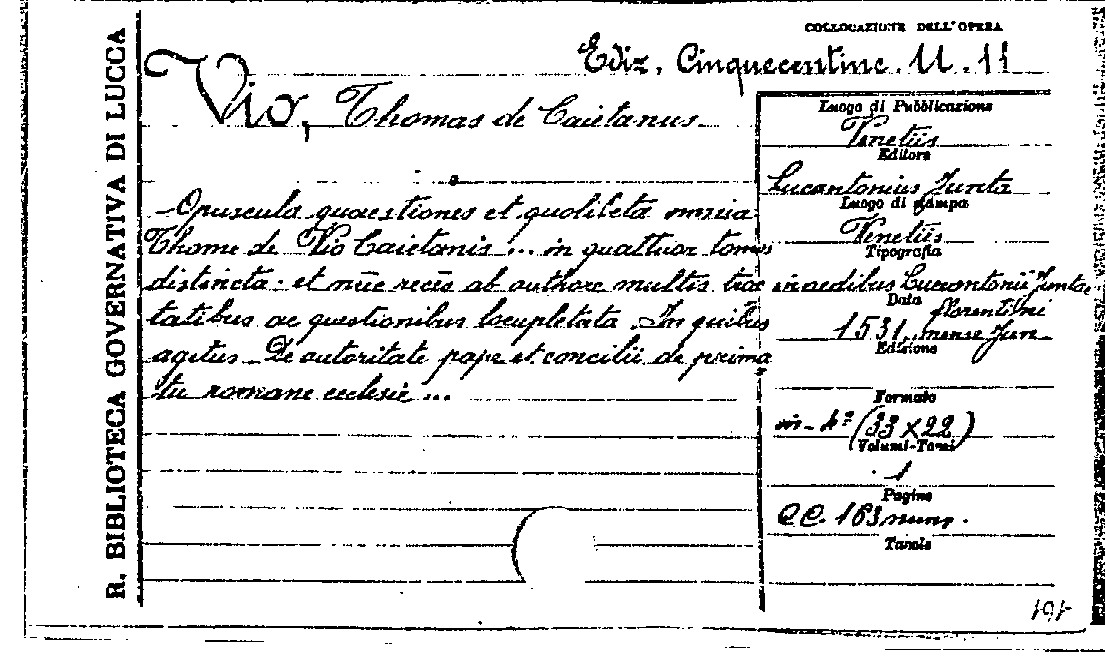 R. BIBLIOTECA GOVERNATIVA DI LUCCA
COLLOCAZIONE DELL'OPERA
Ediz. Cinquecentine. U. 11
Vio, Thomas de Caietanus.
Opuscula quaestiones et quolibeta omnia
Thome de Vio Caietanis ... in quattuor tomos
distincta: et nūc recēs ab authore multis trac
tatibus ac questionibus locupletata. In quibus
agitus De autoritate pape et concilii de prima
tu romane ecclesie ...
Luogo di Pubblicazione
Venetiis
Editore
Lucantonius Junta
Luogo di stampa
Venetiis
Tipografia
in aedibus Lucantonii Juntae
florentini
Data
1531, mense Jun.
Edizione
Formato
in-4º (33 x 22)
Volumi-Tomi
1
Pagine
CC. 163 nump.
Tavole